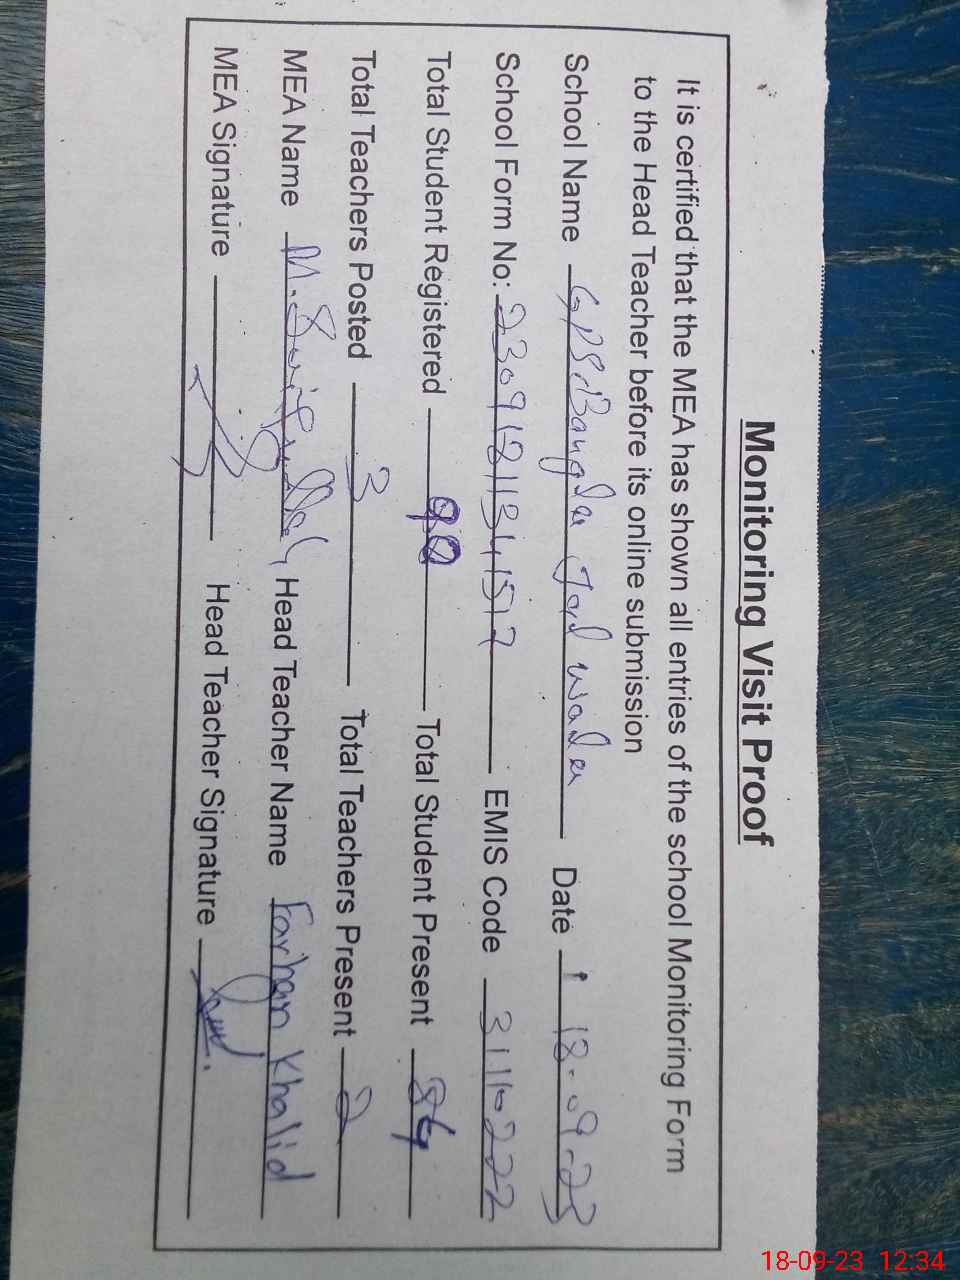 Monitoring Visit Proof
It is certified that the MEA has shown all entries of the school Monitoring Form
to the Head Teacher before its online submission
School Name GPS. Bangla Jail wala Date 18-09-23
School Form No: EMIS Code 31110222
Total Student Registered 90 Total Student Present 84
Total Teachers Posted 3 Total Teachers Present 2
MEA Name M. Saifullah Head Teacher Name Farhan Khalid
MEA Signature Head Teacher Signature
18-09-23 12:34